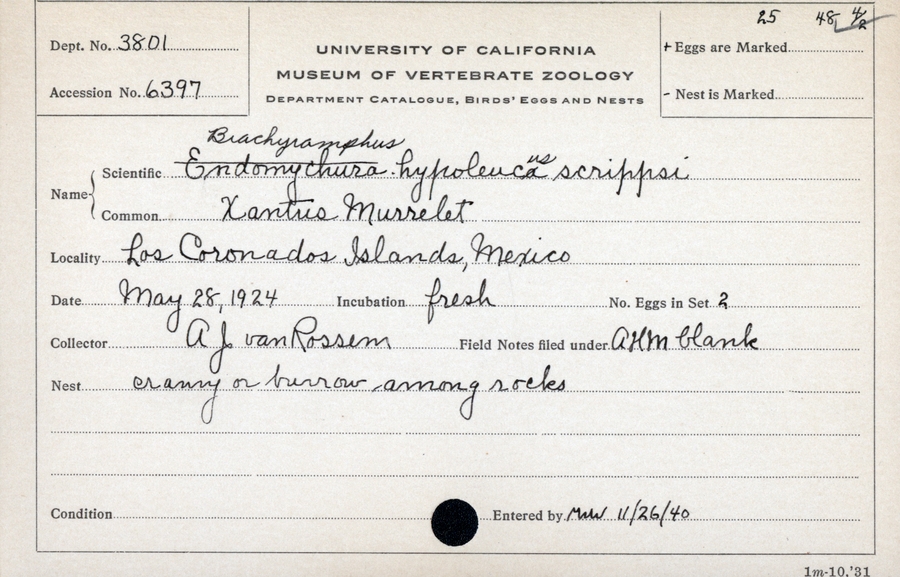 25 48 4/2
Dept. No. 3801
UNIVERSITY OF CALIFORNIA
+ Eggs are Marked
MUSEUM OF VERTEBRATE ZOOLOGY
Accession No. 6397
DEPARTMENT CATALOGUE, BIRDS' EGGS AND NESTS
- Nest is Marked
Brachyramphus
Scientific Endomychura hypoleuca us scrippsi
Name
Common Xantus Murrelet
Locality Los Coronados Islands, Mexico
Date May 28, 1924 Incubation fresh No. Eggs in Set 2
Collector A J van Rossem Field Notes filed under AHM blank
Nest cranny or burrow among rocks
Condition Entered by MW 11/26/40
1m-10,'31